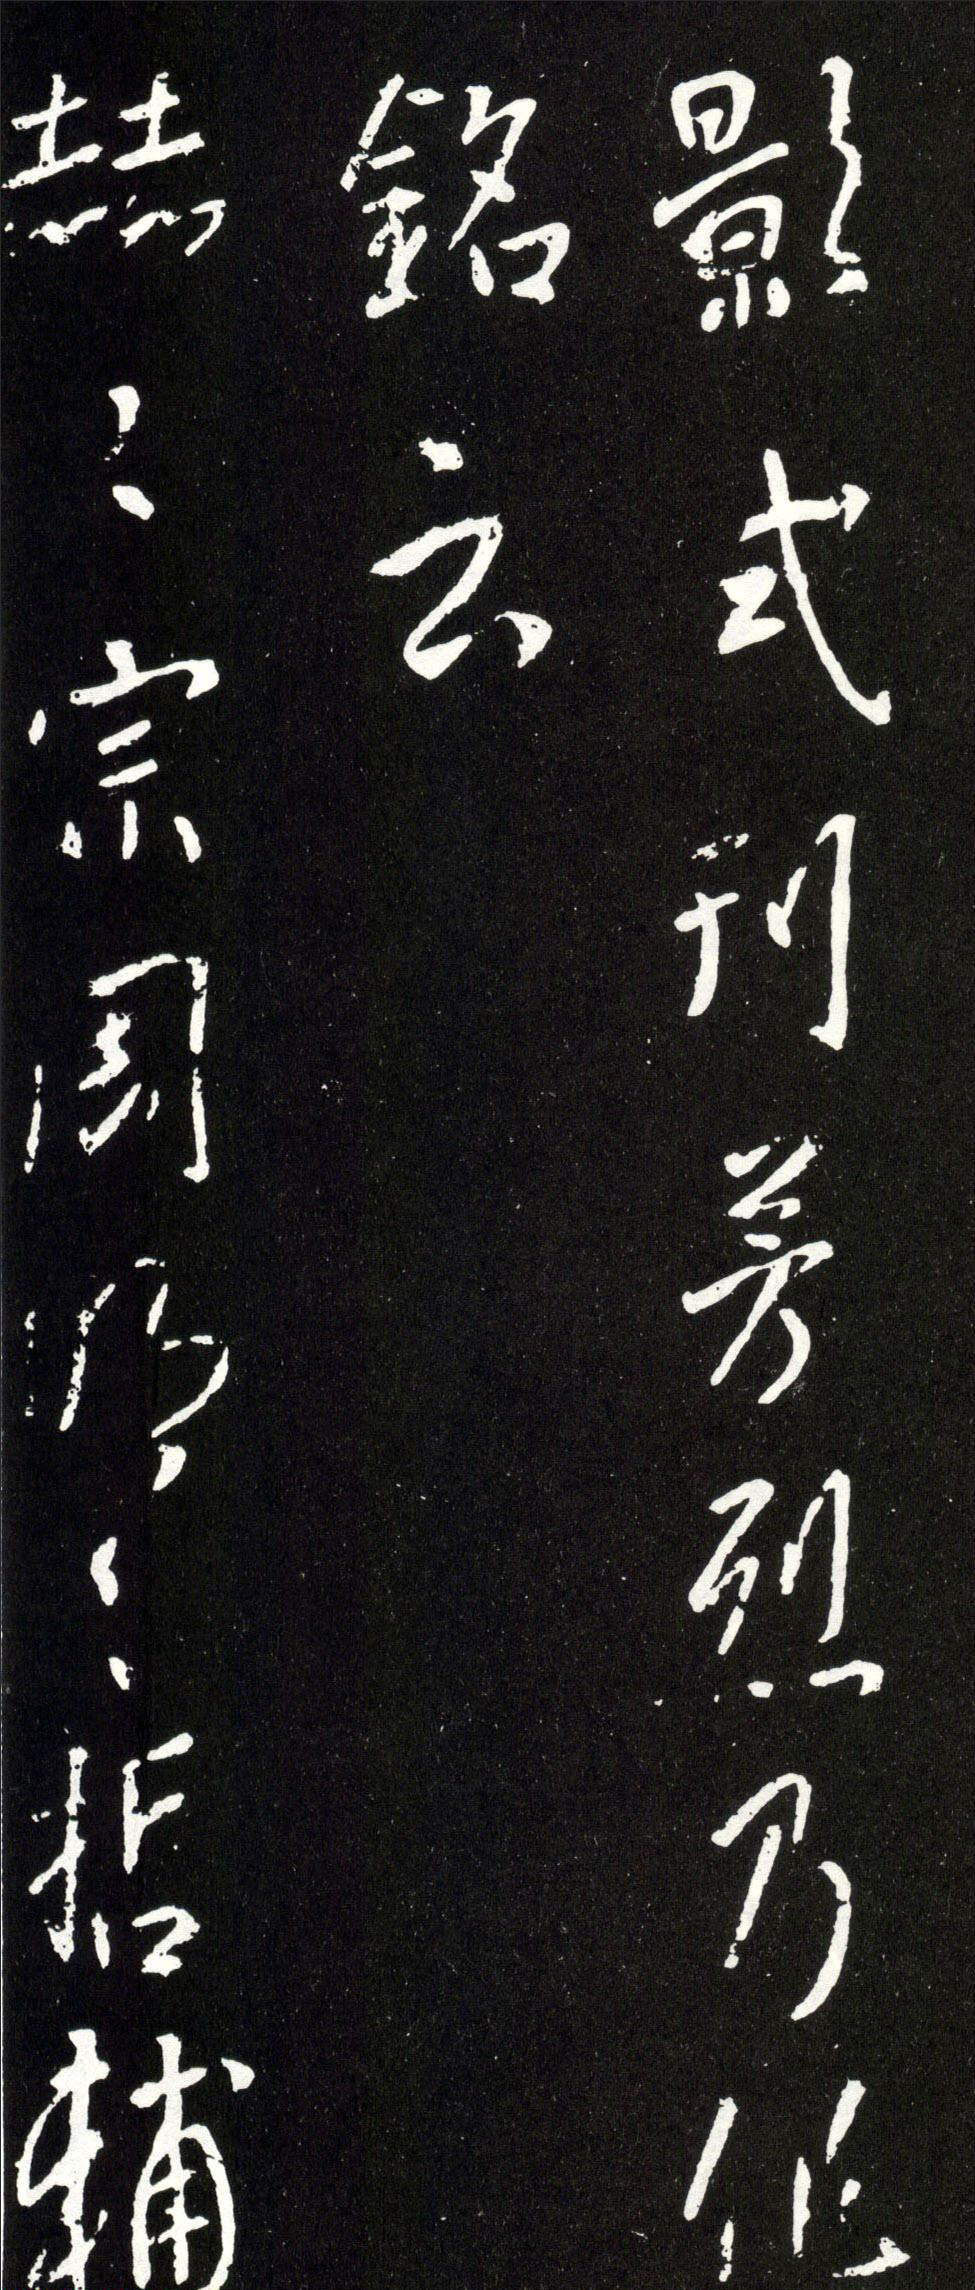 影式刊芳烈乃作
銘云
赫〻宗周明〻哲輔